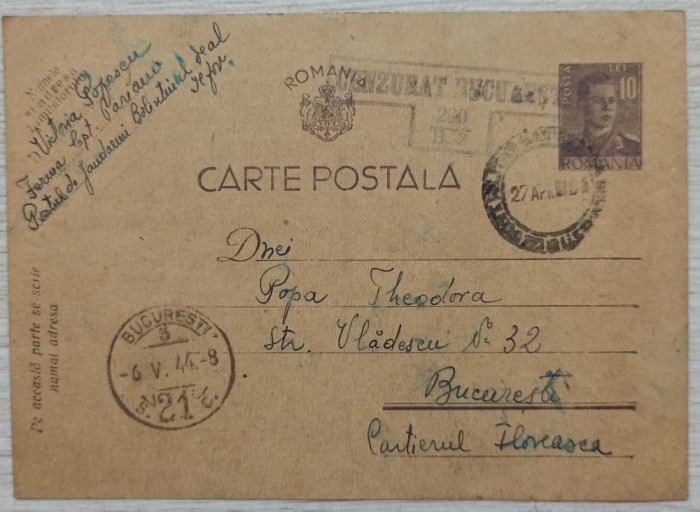 Numele
și adresa
Victoria Popescu
Ferma Cpt.
Postul de Jandarmi Bolintinul deal
ROMANIA
CENZURAT BUCUREȘTI
290
B. 2
POSTA
LEI
10
ROMANIA
27 APR
CARTE POSTALA
Dnei
Popa Theodora
Str. Vlădescu No 32
București
Cartierul Floreasca
BUCUREȘTI
3
-6 V. 44.-8
S. 21 C.
De această parte se scrie
numai adresa